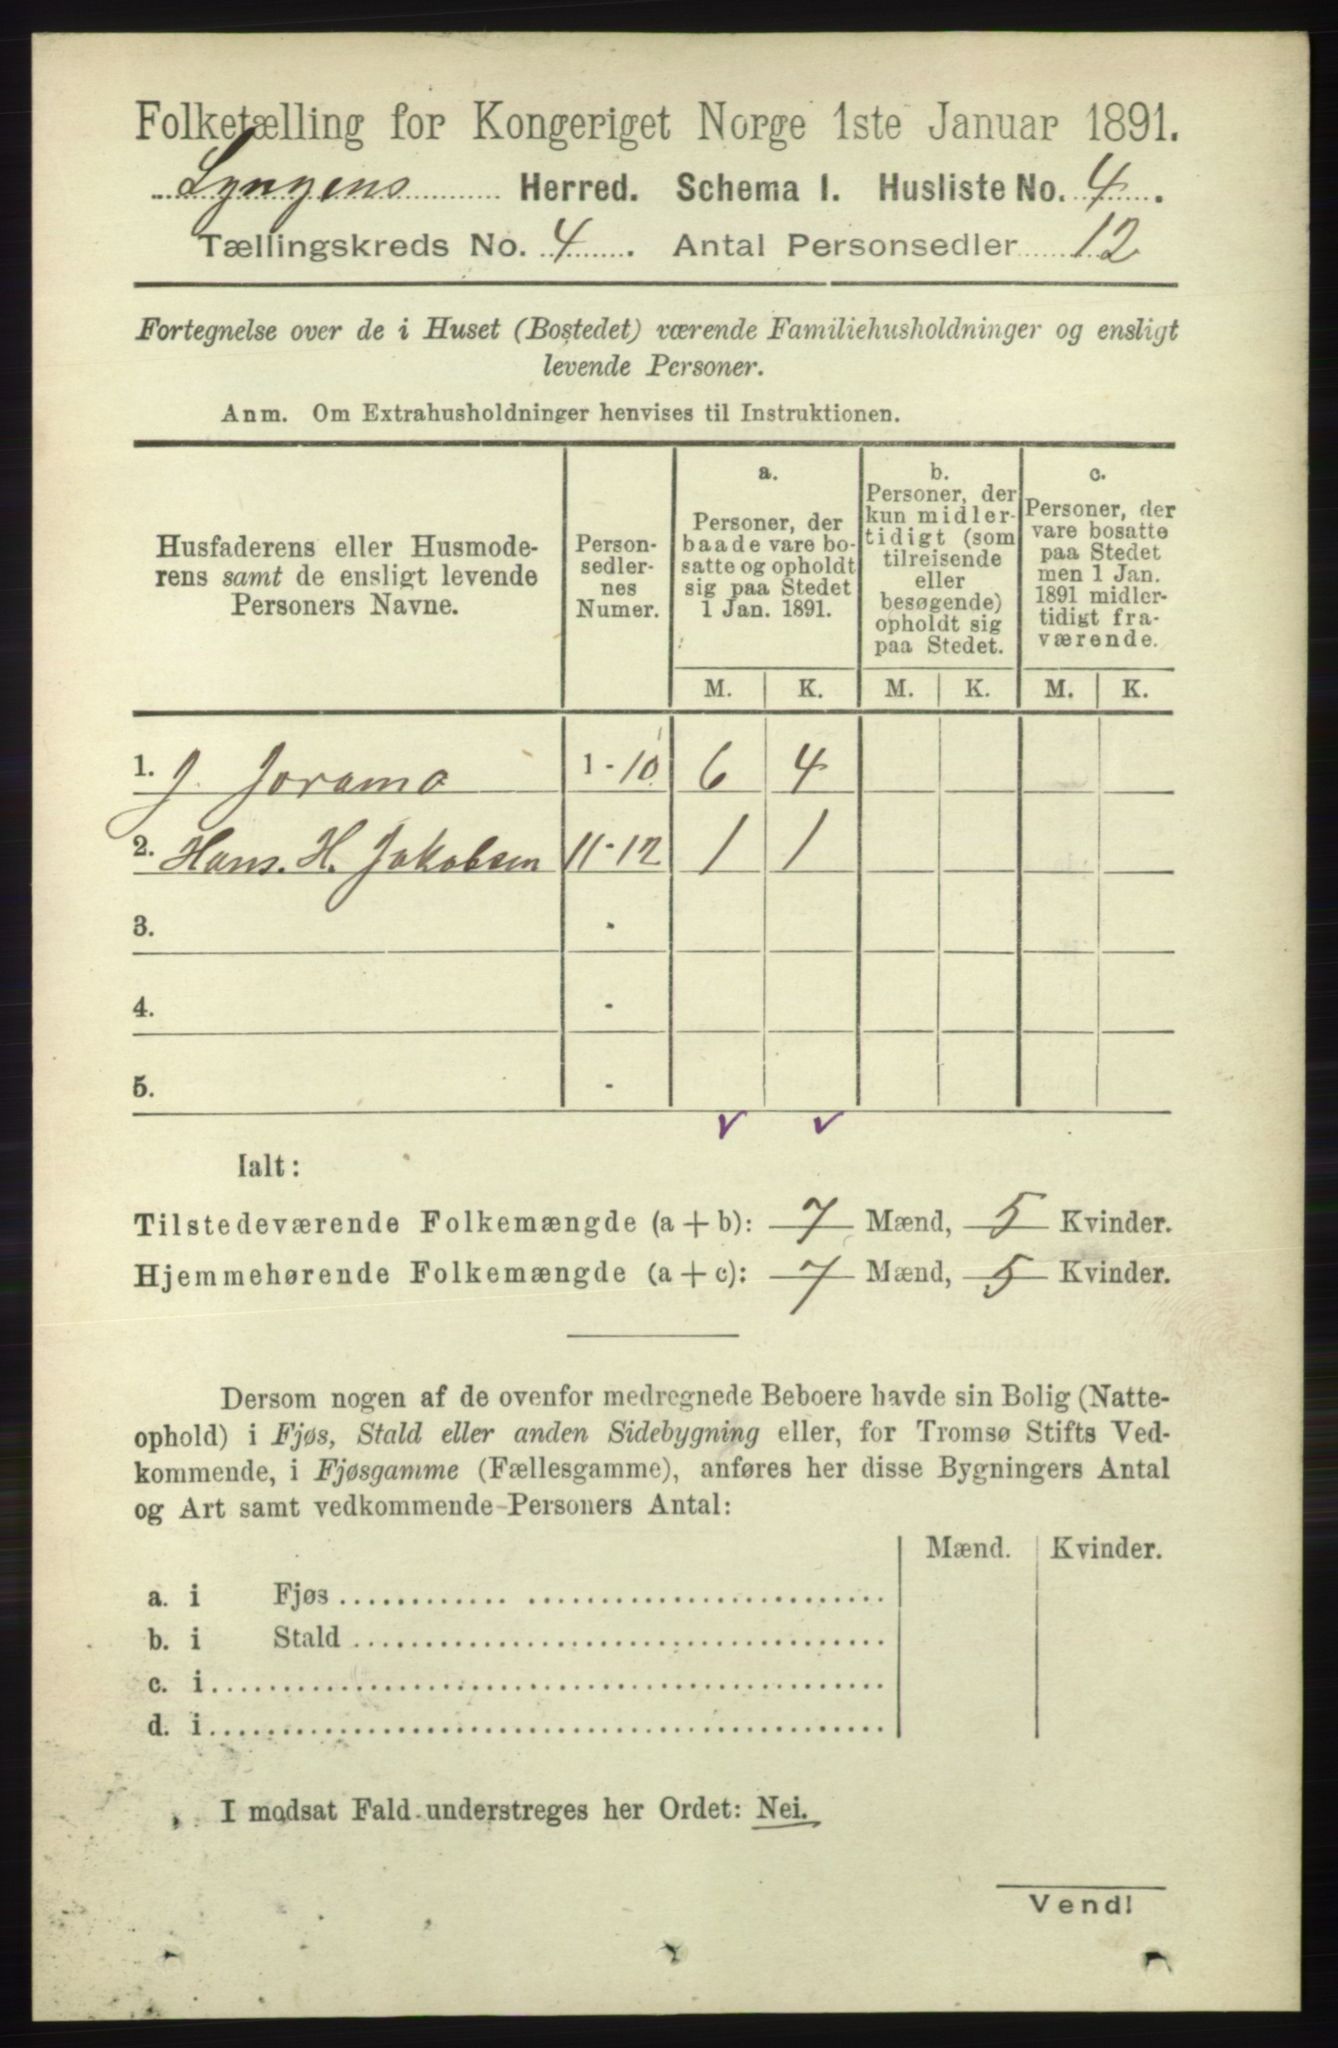 Folketælling for Kongeriget Norge 1ste Januar 1891.
Lyngens Herred. Schema 1. Husliste No. 4.
Tællingskreds No. 4. Antal Personsedler 12
Fortegnelse over de i Huset (Bostedet) værende Familiehusholdninger og ensligt
levende Personer.
Anm. Om Extrahusholdninger henvises til Instruktionen.
Husfaderens eller Husmode-
rens samt de ensligt levende
Personers Navne.
Person-
sedler-
nes
Numer.
a.
Personer, der
baade vare bo-
satte og opholdt
sig paa Stedet
1 Jan. 1891.
b.
Personer, der
kun midler-
tidigt (som
tilreisende
eller
besøgende)
opholdt sig
paa Stedet.
c.
Personer, der
vare bosatte
paa Stedet
men 1 Jan.
1891 midler-
tidigt fra-
værende.
M. K. M. K. M. K.
1. J. Joramo 1-10 6 4
2. Hans. H. Jakobsen 11-12 1 1
3. -
4. -
5. -
Ialt:
Tilstedeværende Folkemængde (a + b): 7 Mænd, 5 Kvinder.
Hjemmehørende Folkemængde (a + c): 7 Mænd, 5 Kvinder.
Dersom nogen af de ovenfor medregnede Beboere havde sin Bolig (Natte-
ophold) i Fjøs, Stald eller anden Sidebygning eller, for Tromsø Stifts Ved-
kommende, i Fjøsgamme (Fællesgamme), anføres her disse Bygningers Antal
og Art samt vedkommende Personers Antal:
Mænd. Kvinder.
a. i Fjøs
b. i Stald
c. i
d. i
I modsat Fald understreges her Ordet: Nei.
Vend!